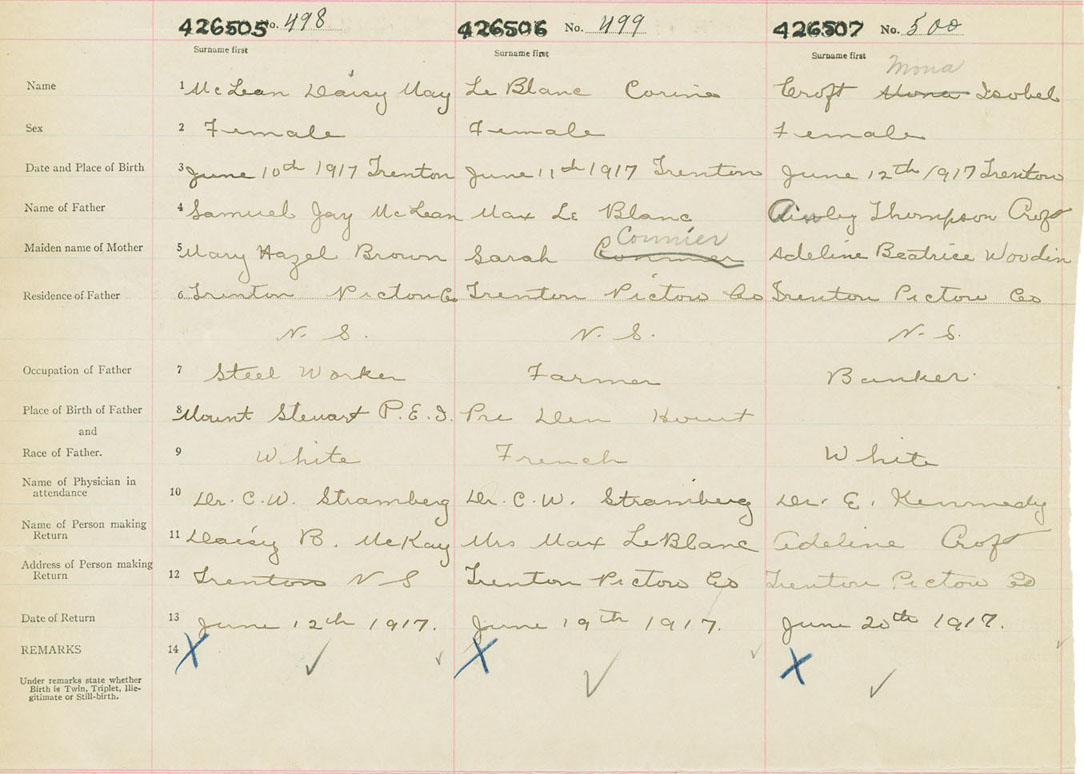 426505 No. 498 426506 No. 499 426507 No. 500
Surname first Surname first Surname first
Mona
Name 1 McLean Daisy May Le Blanc Corine Croft Mona Isobel
Sex 2 Female Female Female
Date and Place of Birth 3 June 10th 1917 Trenton June 11th 1917 Trenton June 12th 1917 Trenton
Name of Father 4 Samuel Jay McLean Max Le Blanc Thompson Croft
Cormier
Maiden name of Mother 5 Mary Hazel Brown Sarah Adeline Beatrice Woodin
Residence of Father 6 Trenton Pictou Co Trenton Pictou Co Trenton Pictou Co
N. S. N. S. N. S.
Occupation of Father 7 Steel Worker Farmer Banker
Place of Birth of Father 8 Mount Stewart P. E. I.
and
Race of Father. 9 White French White
Name of Physician in
attendance 10 Dr. C. W. Stramberg Dr. C. W. Stramberg Dr. E. Kennedy
Name of Person making
Return 11 Daisy B. McKay Mrs Max LeBlanc Adeline Croft
Address of Person making
Return 12 Trenton N S Trenton Pictou Co Trenton Pictou Co
Date of Return 13 June 12th 1917. June 19th 1917. June 20th 1917.
REMARKS 14
Under remarks state whether
Birth is Twin, Triplet, Ille-
gitimate or Still-birth.